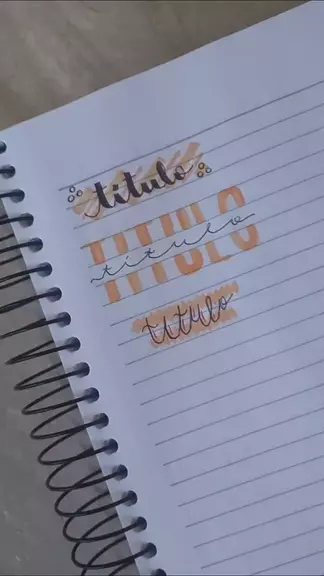 titulo
TITULO
titulo
titulo